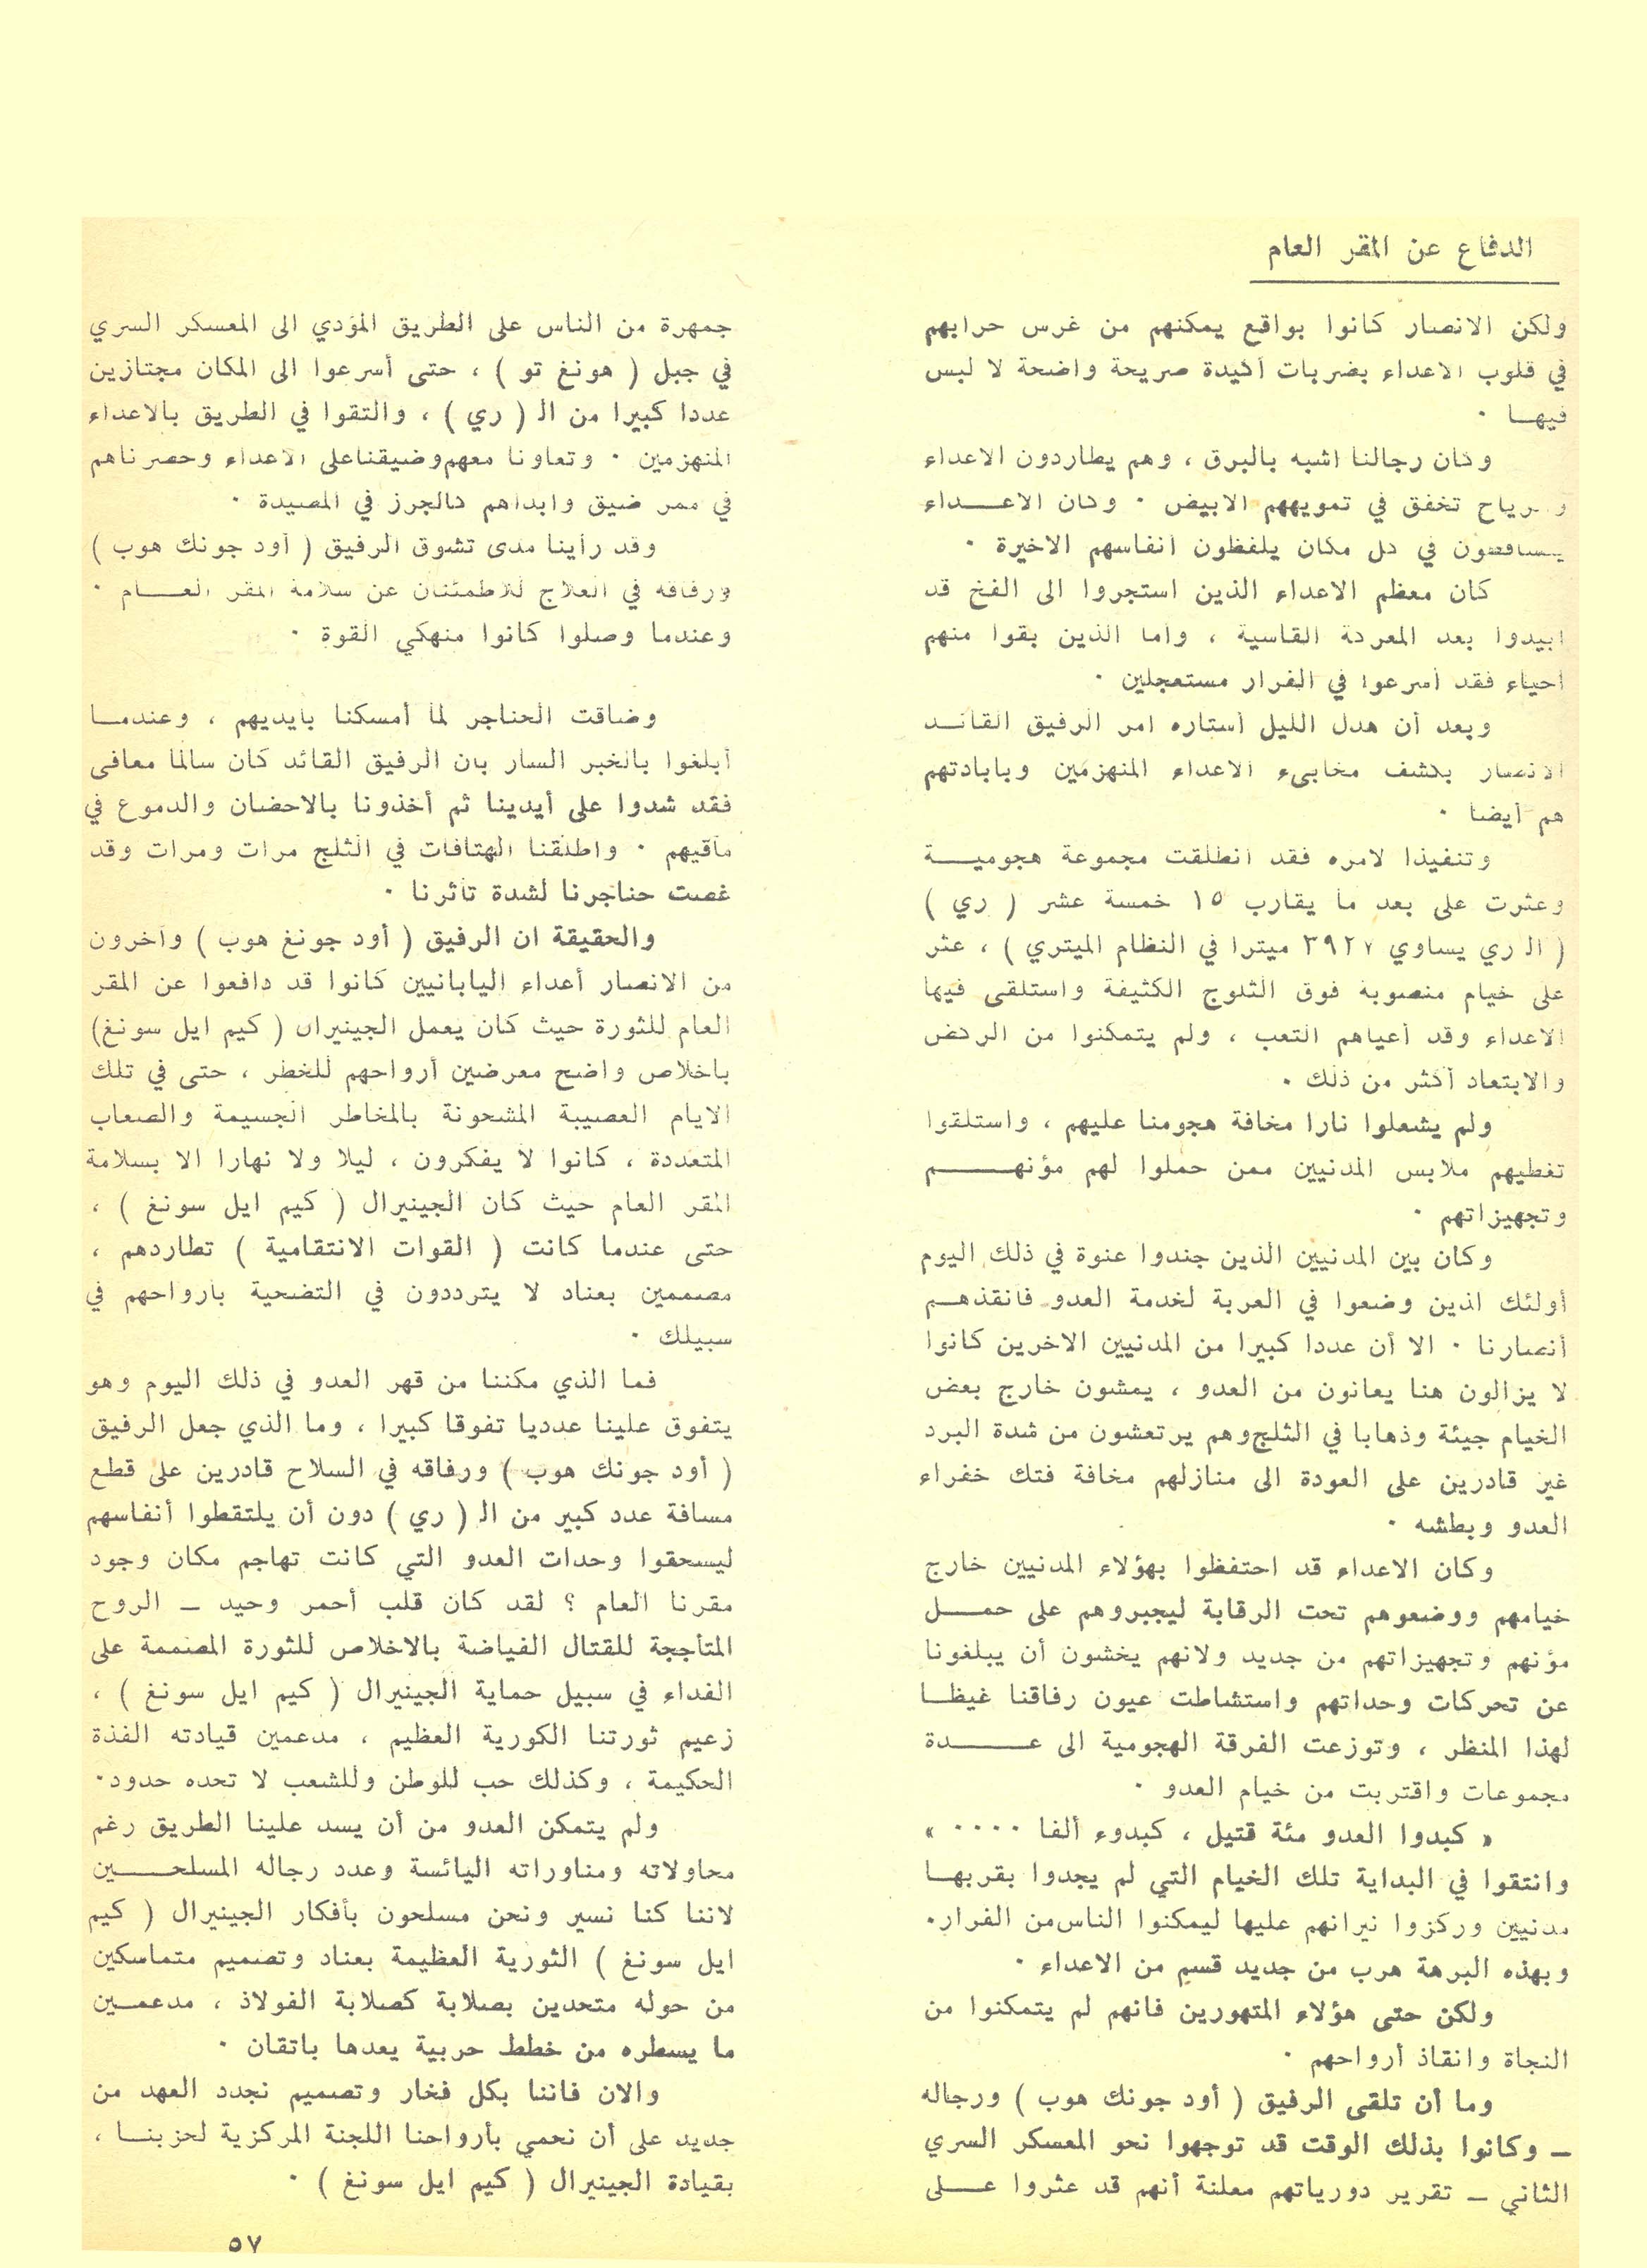 الدفاع عن المقر العام
ولكن الانصار كانوا بواقع يمكنهم من غرس حرابهم
في قلوب الاعداء بضربات أكيدة صريحة واضحة لا لبس
فيهـا ٠
وكان رجالنا اشبه بالبرق ، وهم يطاردون الاعداء
والرياح تخفق في تمويههم الابيض ٠ وكان الاعـــداء
يتساقطون في كل مكان يلفظون أنفاسهم الاخيرة ٠
كان معظم الاعداء الذين استجروا الى الفخ قد
ابيدوا بعد المعركة القاسية ، وأما الذين بقوا منهم
أحياء فقد أسرعوا في الفرار مستعجلين ٠
وبعد أن هدل الليل أستاره امر الرفيق القائـد
الانصار بكشف مخابىء الاعداء المنهزمين وبابادتهم
هم أيضا ٠
وتنفيذا لامره فقد انطلقت مجموعة هجوميـــة
وعثرت على بعد ما يقارب ١٥ خمسة عشر ( ري )
( الـ ري يساوي ٣٩٢٧ ميترا في النظام الميتري ) ، عثر
على خيام منصوبة فوق الثلوج الكثيفة واستلقى فيها
الاعداء وقد أعياهم التعب ، ولم يتمكنوا من الركض
والابتعاد أكثر من ذلك ٠
ولم يشعلوا نارا مخافة هجومنا عليهم ، واستلقوا
تغطيهم ملابس المدنيين ممن حملوا لهم مؤنهــــم
وتجهيزاتهم ٠
وكان بين المدنيين الذين جندوا عنوة في ذلك اليوم
أولئك الذين وضعوا في العربة لخدمة العدو فأنقذهـم
أنصارنا ٠ الا أن عددا كبيرا من المدنيين الاخرين كانوا
لا يزالون هنا يعانون من العدو ، يمشون خارج بعض
الخيام جيئة وذهابا في الثلج وهم يرتعشون من شدة البرد
غير قادرين على العودة الى منازلهم مخافة فتك خفراء
العدو وبطشه ٠
وكان الاعداء قد احتفظوا بهؤلاء المدنيين خارج
خيامهم ووضعوهم تحت الرقابة ليجبروهم على حمـــل
مؤنهم وتجهيزاتهم من جديد ولانهم يخشون أن يبلغونا
عن تحركات وحداتهم واستشاطت عيون رفاقنا غيظـا
لهذا المنظر ، وتوزعت الفرقة الهجومية الى عـــــدة
مجموعات واقتربت من خيام العدو ٠
« كبدوا العدو مئة قتيل ، كبدوء ألفا ٠٠٠٠ »
وانتقوا في البداية تلك الخيام التي لم يجدوا بقربهـا
مدنيين وركزوا نيرانهم عليها ليمكنوا الناس من الفرار٠
وبهذه البرهة هرب من جديد قسم من الاعداء ٠
ولكن حتى هؤلاء المتهورين فانهم لم يتمكنوا من
النجاة وانقاذ أرواحهم ٠
وما أن تلقى الرفيق ( أود جونك هوب ) ورجاله
ـ وكانوا بذلك الوقت قد توجهوا نحو المعسكر السري
الثاني ـ تقرير دورياتهم معلنة أنهم قد عثروا عـــلى
جمهرة من الناس على الطريق المؤدي الى المعسكر السري
في جبل ( هونغ تو ) ، حتى أسرعوا الى المكان مجتازين
عددا كبيرا من الـ ( ري ) ، والتقوا في الطريق بالاعداء
المنهزمين ٠ وتعاونا معهم وضيقنا على الاعداء وحصرناهم
في ممر ضيق وابداهم كالجرز في المصيدة ٠
وقد رأينا مدى تشوق الرفيق ( أود جونك هوب )
ورفاقه في العلاج للاطمئنان عن سلامة المقر العـــام ٠
وعندما وصلوا كانوا منهكي القوة ٠
وضاقت الحناجر لما أمسكنا بأيديهم ، وعندمـا
أبلغوا بالخبر السار بان الرفيق القائد كان سالما معافى
فقد شدوا على أيدينا ثم أخذونا بالاحضان والدموع في
مآقيهم ٠ واطلقنا الهتافات في الثلج مرات ومرات وقد
غصت حناجرنا لشدة تأثرنا ٠
والحقيقة ان الرفيق ( أود جونغ هوب ) وآخرون
من الانصار أعداء اليابانيين كانوا قد دافعوا عن المقر
العام للثورة حيث كان يعمل الجينيرال ( كيم ايل سونغ)
باخلاص واضح معرضين أرواحهم للخطر ، حتى في تلك
الايام العصيبة المشحونة بالمخاطر الجسيمة والصعاب
المتعددة ، كانوا لا يفكرون ، ليلا ولا نهارا الا بسلامة
المقر العام حيث كان الجينيرال ( كيم ايل سونغ ) ،
حتى عندما كانت ( القوات الانتقامية ) تطاردهم ،
مصممين بعناد لا يترددون في التضحية بأرواحهم في
سبيلك ٠
فما الذي مكننا من قهر العدو في ذلك اليوم وهو
يتفوق علينا عدديا تفوقا كبيرا ، وما الذي جعل الرفيق
( أود جونك هوب ) ورفاقه في السلاح قادرين على قطع
مسافة عدد كبير من الـ ( ري ) دون أن يلتقطوا أنفاسهم
ليسحقوا وحدات العدو التي كانت تهاجم مكان وجود
مقرنا العام ؟ لقد كان قلب أحمر وحيد ـ الروح
المتأججة للقتال الفياضة بالاخلاص للثورة المصممة على
الفداء في سبيل حماية الجينيرال ( كيم ايل سونغ ) ،
زعيم ثورتنا الكورية العظيم ، مدعمين قيادته الفذة
الحكيمة ، وكذلك حب للوطن وللشعب لا تحده حدود٠
ولم يتمكن العدو من أن يسد علينا الطريق رغم
محاولاته ومناوراته اليائسة وعدد رجاله المسلحـــين
لاننا كنا نسير ونحن مسلحون بأفكار الجينيرال ( كيم
ايل سونغ ) الثورية العظيمة بعناد وتصميم متماسكين
من حوله متحدين بصلابة كصلابة الفولاذ ، مدعمـين
ما يسطره من خطط حربية يعدها باتقان ٠
والان فاننا بكل فخار وتصميم نجدد العهد من
جديد على أن نحمي بأرواحنا اللجنة المركزية لحزبنـا ،
بقيادة الجينيرال ( كيم ايل سونغ ) ٠
٥٧